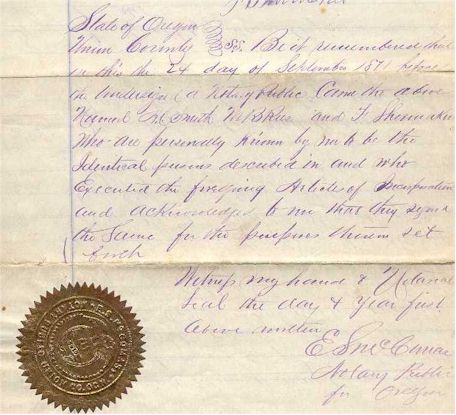 State of Oregon
Union County } SS. Be it remembered that
on this the 24 day of September 1871 before
the undersign a Notary Public Came the above
Named Smith and
Who are personally Known by me to be the
Identical persons described in and who
Executed the foregoing Articles of Incorporation
and acknowledged to me that they signed
the Same for the purposes therein set
forth
Witness my hand & Notarial
Seal the day & Year first
Above written
E S Mc Comas
Notary Public
for Oregon